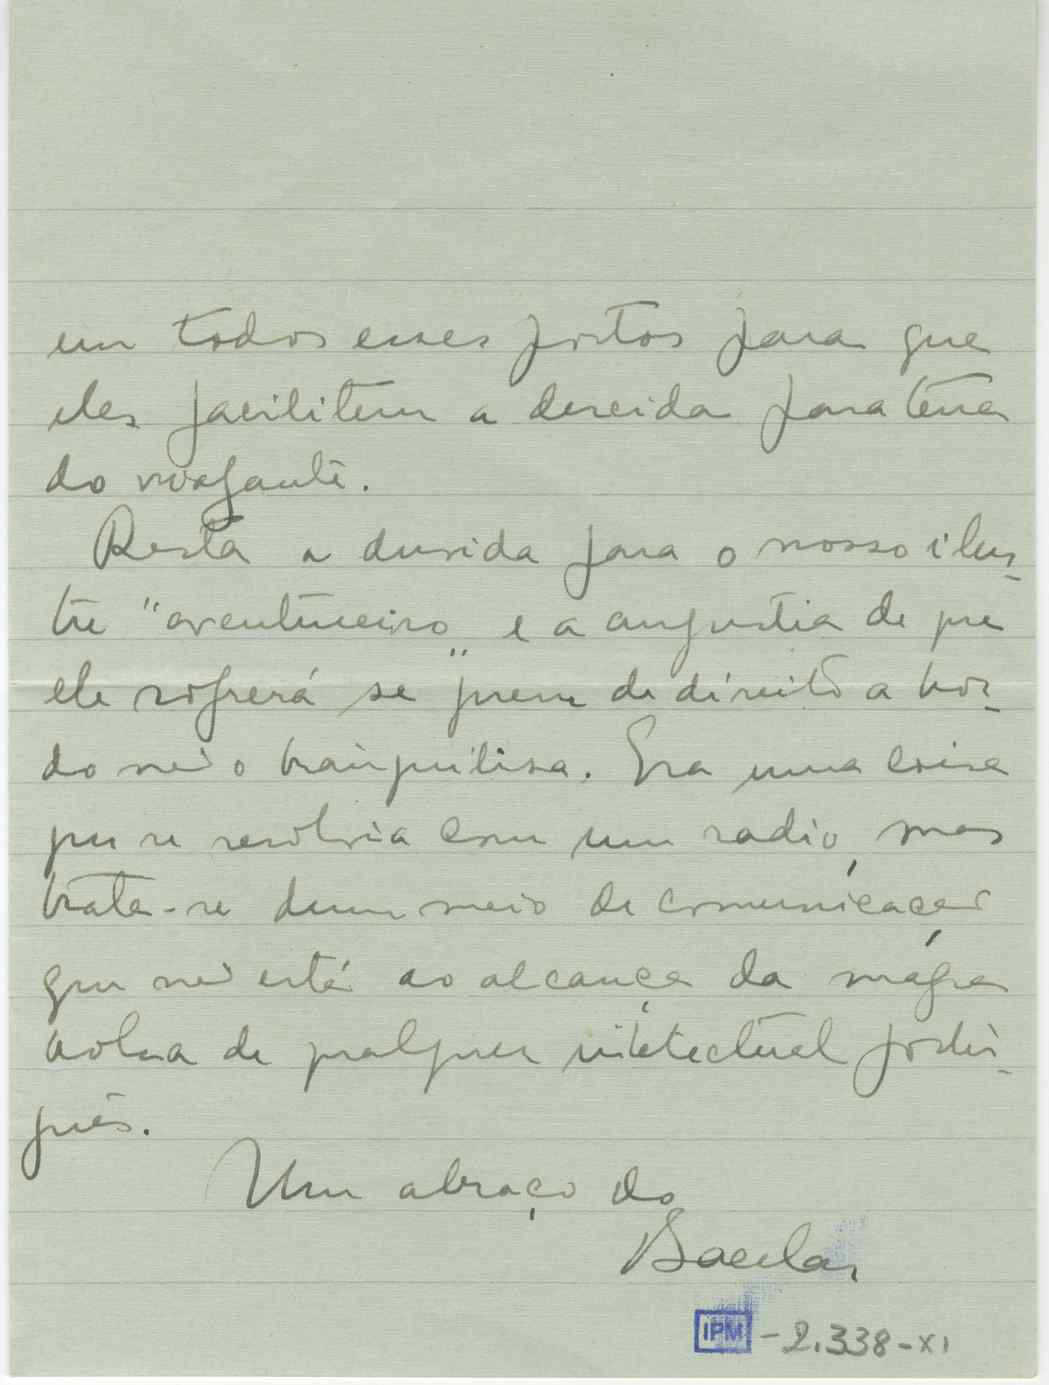 em todos esses portos para que
eles facilitem a descida para terra
do viajante.
Resta a duvida para o nosso ilus-
tre "aventureiro" e a angustia de que
ele sofrerá se quem de direito a bor-
do não tranquilisa. Era uma coisa
que se resolvia com um radio, mas
trata-se dum meio de comunicação
que não está ao alcance da magra
bolsa de qualquer intelectual portu-
guês.
Um abraço do
Bacelar
IPM - 2.338-XI